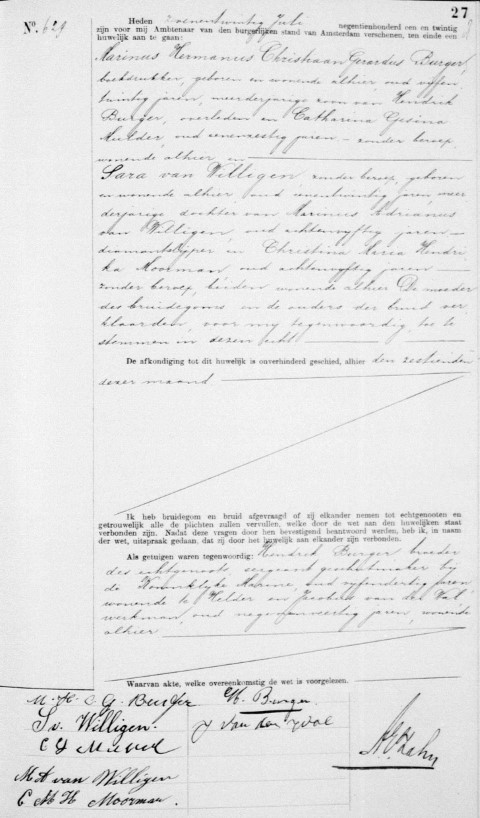 27
No. 629
Heden zevenentwintig Juli negentienhonderd een en twintig
zijn voor mij Ambtenaar van den burgerlijken stand van Amsterdam verschenen, ten einde een
huwelijk aan te gaan:
Marinus Hermanus Christiaan Gerardus Burger,
boekdrukker, geboren en wonende alhier, oud vijfen
twintig jaren, meerderjarige zoon van Hendrik
Burger, overleden en Catharina Gesina
Mulder, oud zevenenzestig jaren - zonder beroep,
wonende alhier, en
Sara van Willigen, zonder beroep, geboren
en wonende alhier, oud jaren, meer
derjarige dochter van Marinus Adrianus
van Willigen, oud achtenvyftig jaren
diamantslijper, en Christina Maria Hendri
ka Moorman, oud achtenvyftig jaren
zonder beroep, beiden wonende alhier De moeder
des bruidegoms en de ouders der bruid ver
klaarden, voor my tegenwoordig, toe te
stemmen in dezen echt
De afkondiging tot dit huwelijk is onverhinderd geschied, alhier den zestienden
dezer maand
Ik heb bruidegom en bruid afgevraagd of zij elkander nemen tot echtgenooten en
getrouwelijk alle de plichten zullen vervullen, welke door de wet aan den huwelijken staat
verbonden zijn. Nadat deze vragen door hen bevestigend beantwoord werden, heb ik, in naam
der wet, uitspraak gedaan, dat zij door het huwelijk aan elkander zijn verbonden.
Als getuigen waren tegenwoordig: Hendrik Burger broeder
des echtgenoots sergeant geschutmaker by
de Koninklyke Marine, oud vyfendertig jaren
wonende te Helder en Jacobus van der Wal
werkman, oud negenenveertig jaren, wonende
alhier
Waarvan akte, welke overeenkomstig de wet is voorgelezen.
M. H. C. G. Burger H. Burger.
S. v. Willigen. J van der Wal
C G Mulder
M A van Willigen
C M H Moorman.